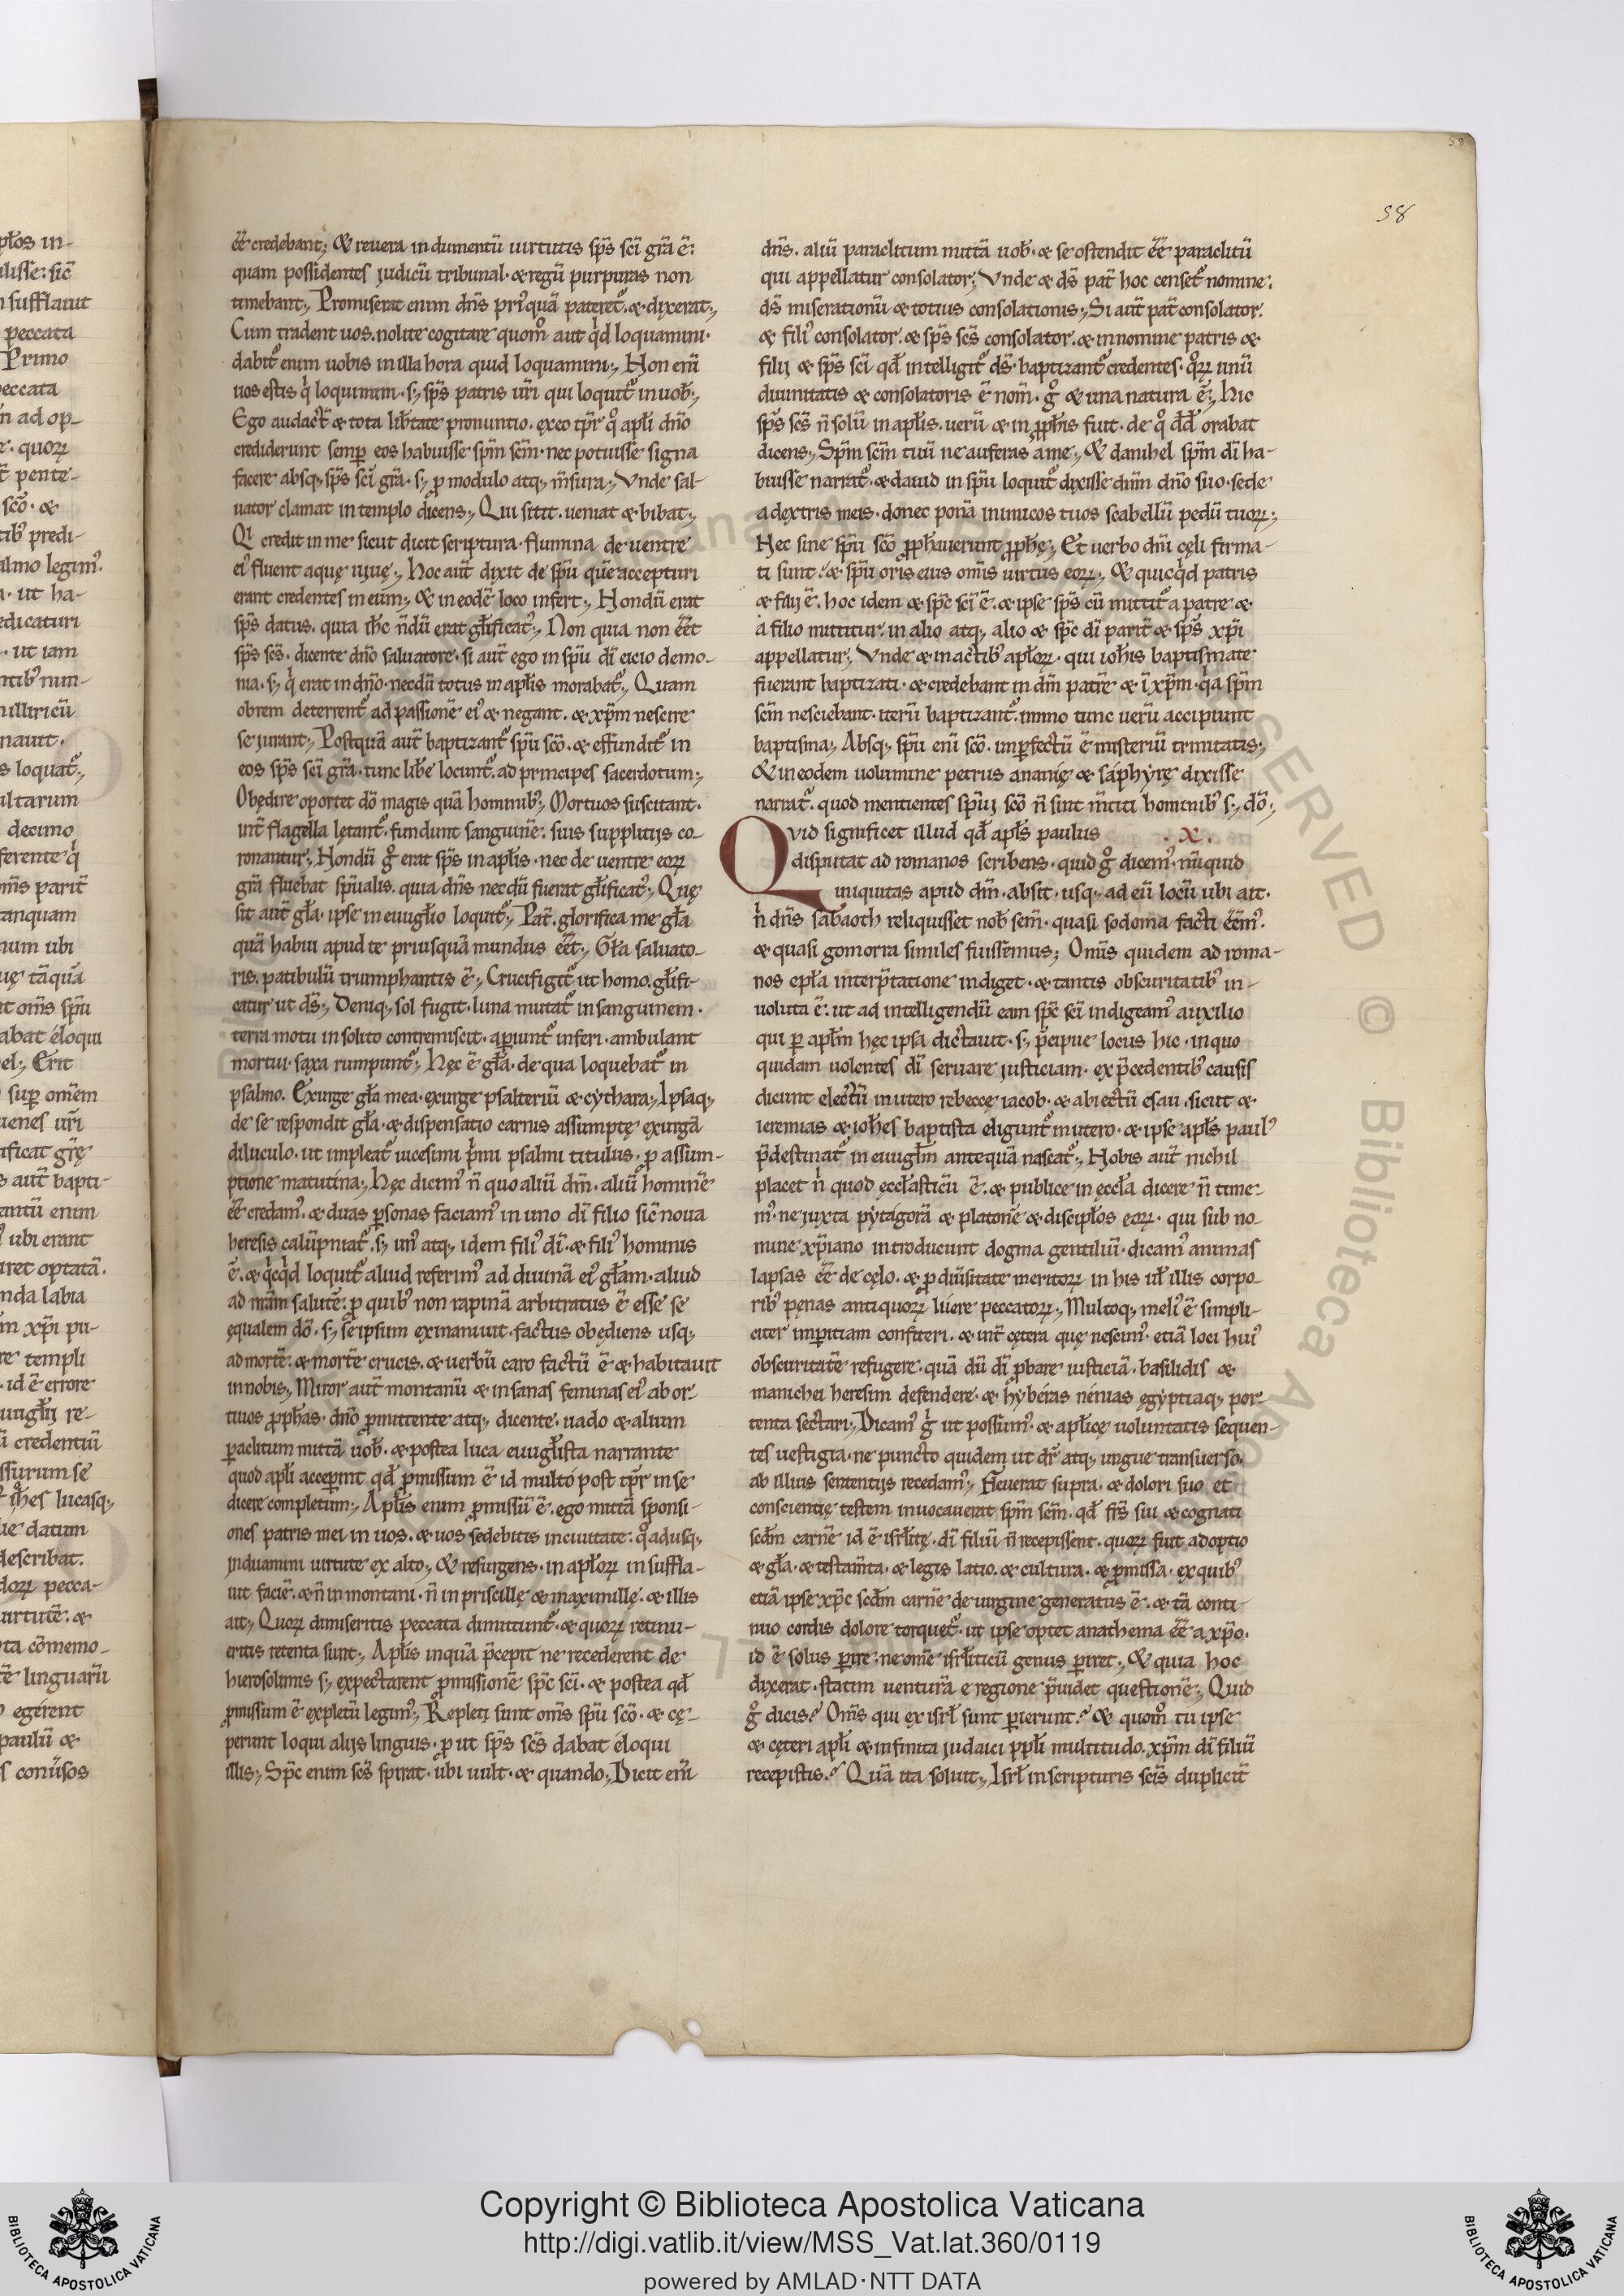 58
58
ee̅ credebant; & reuera indumentu̅ uirtutis sp̅s sc̅i gr̅a e̅:
quam possidentes judicu̅ tribunal · & regu̅ purpuras non
timebant; Promiserat enim dn̅s pri᷒qua̅ pateret᷑ · & dixerat;
Cum tradent uos. nolite cogitare quom̊ aut q̍d loquamini ·
dabit᷑ enim uobis in illa hora quid loquamini; Non eni̅
uos estis q̍ loquimini · s; sp̅s patris ur̅i qui loquit᷑ in uob̅;
Ego audact̅ & tota lib̅tate pronuntio · ęxeo tp̅r q̊ apl̅i dn̅o
crediderunt semp̲ eos habuisse sp̅m sc̅m · nec potuisse signa
facere absq; sp̅s sc̅i gr̅a · s; p̲ modulo atq; m̅sura; Vnde sal-
uator clamat in templo dicens; Qui sitit · ueniat & bibat;
Qi credit in me sicut dicit scriptura · flumina de uentre
ei᷒ fluent aquę uiuę; Hoc aut̅ dixit de sp̅u que̅ accepturi
erant credentes in eum; & in eode̅ loco infert; Nondu̅ erat
sp̅s datus. quia ih̅c n̅du̅ erat gl̅ificat᷒; Non quia non ee̅t
sp̅s sc̅s · dicente dn̅o saluatore · si aut̅ ego in sp̅u di̅ eicio demo-
nia · s; q̍ erat in dn̅o · necdu̅ totus in apl̅is morabat᷑; Quam
obrem deterrent᷑ ad passione̅ ei᷒ & negant · & xp̅m nescire
se jurant; Postqua̅ aut̅ baptizant᷑ sp̅u sc̅o · & effundit᷑ in
eos sp̅s sc̅i gr̅a · tunc lib̅e locunt᷑ · ad principes sacerdotum;
Obędire oportet do̅ magis qua̅ hominib᷒; Mortuos suscitant ·
int̅ flagella lętant᷑ · fundunt sanguine̅ · suis suppliciis co-
ronantur; Nondu̅ g̊ erat sp̅s in apl̅is · nec de uentre eoꝝ
gr̅a fluebat sp̅ualis · quia dn̅s necdu̅ fuerat gl̅ificat᷒; Quę
sit aut̅ gl̅a · ipse in euugl̅io loquit᷑; Pat̅ · glorifica me gl̅a
qua̅ habui apud te priusqua̅ mundus ee̅t; Gl̅a saluato-
ris. patibulu̅ triumphantis e̅; Crucifigit᷑ ut homo. gl̅ifi-
catur ut ds̅; Deniq; sol fugit · luna mutat᷑ in sanguinem ·
terra motu insolito contremiscit · ap̲iunt᷑ inferi · ambulant
mortui · saxa rumpunt᷑; Hęc e̅ gl̅a · de qua loquebat᷑ in
psalmo. Exurge gl̅a mea · exurge psalteriu̅ & cythara; Ipsaq;
de se respondit gl̅a · & dispensatio carnis assumptę exurga̅
diluculo · ut impleat᷑ uicesimi p̍mi psalmi titulus · p̲ assum-
ptione matutina; Hęc dicim᷒ n̅ quo aliu̅ dm̅ · aliu̅ homine̅
ee̅ credam᷒ · & duas p̲sonas faciam᷒ in uno di̅ filio sic̅ noua
heresis calu̅pniat᷑ · s; un᷒ atq; idem fili᷒ di̅ · & fili᷒ hominis
e̅ · & q̍cq̍d loquit᷑ aliud referim᷒ ad diuina̅ ei᷒ gl̅am · aliud
ad nr̅am salute̅ · p̲ quib᷒ non rapina̅ arbitratus e̅ esse se
ęqualem do̅ · s; se ipsum exinaniuit · factus obędiens usq;
ad morte̅ · & morte̅ crucis · & uerbu̅ caro factu̅ e̅ & habitauit
in nobis; Miror aut̅ montanu̅ & insanas feminas ei᷒ abor-
tiuos p̲ph̅as · dn̅o p̲mittente atq; dicente · uado & alium
p̲aclitum mitta̅ uob̅ · & postea luca euugl̅ista narrante
quod apl̅i accep̲int qd̅ p̲missum e̅ id multo post tp̅r in se
dicere completum; Apl̅is enim p̲missu̅ e̅ · ego mitta̅ sponsi-
ones patris mei in uos · & uos sedebitis in ciuitate · q̊adusq;
jnduamini uirtute ex alto; & resurgens · in apl̅oꝝ insuffla-
uit facie̅ · & n̅ in montani · n̅ in priscillę & maximillę · & illis
ait; Quoꝝ dimiseritis peccata dimittunt᷑ · & quoꝝ retinu-
eritis retenta sunt; Apl̅is inqua̅ p̅cepit ne recederent de
hierosolimis s; expectarent p̲missione̅ sp̅c sc̅i · & postea qd̅
p̲missum e̅ expletu̅ legim᷒; Repleti sunt om̅s sp̅u sc̅o · & cę-
perunt loqui alijs linguis · p̲ut sp̅s sc̅s dabat eloqui
illis; Sp̅c enim sc̅s spirat · ubi uult · & quando; Dicit eni̅
dn̅s · aliu̅ paraclitum mitta̅ uob̅ · & se ostendit ee̅ paraclitu̅
qui appellatur consolator; Vnde & ds̅ pat̅ hoc censet᷑ nomine:
ds̅ miserationu̅ & totius consolationis; Si aut̅ pat̅ consolator.
& fili᷒ consolator · & sp̅s sc̅s consolator · & in nomine patris &
filij & sp̅s sc̅i qd̅ intelligit᷑ ds̅ · baptizant᷑ credentes · q̊ꝝ unu̅
diuinitatis & consolatoris e̅ nom̅ · g̊ & una natura e̅; Hic
sp̅s sc̅s n̅ solu̅ in apl̅is · ueru̅ & in p̲ph̅is fuit · de q̊ dd̅ orabat
dicens; Sp̅m sc̅m tuu̅ ne auferas a me; & danihel sp̅m di̅ ha-
buisse narrat᷑ · & dauid in sp̅u loquit᷑ dixisse dn̅m dn̅o suo · sede
a dextris meis · donec pona̅ inimicos tuos scabellu̅ pedu̅ tuoꝝ;
Hec sine sp̅u sc̅o p̲ph̅auerunt p̲ph̅ę; Et uerbo dn̅i cęli firma-
ti sunt · & sp̅u oris eius om̅is uirtus eoꝝ; & quicq̍d patris
& filij e̅ · hoc idem & sp̅c sc̅i e̅ · & ipse sp̅s cu̅ mittit᷑ a patre &
a filio mittitur · in alio atq; alio & sp̅c di̅ parit̅ & sp̅s xp̅i
appellatur; Vnde & in actib᷒ apl̅oꝝ · qui ioh̅is baptismate
fuerant baptizati · & credebant in dm̅ patre̅ & i̅ xp̅m · q̍a sp̅m
sc̅m nesciebant · iteru̅ baptizant᷑ · immo tunc ueru̅ accipiunt
baptisma; Absq; sp̅u eni̅ sc̅o · imp̲fectu̅ e̅ misteriu̅ trinitatis;
& in eodem uolumine petrus ananię & saphyrę dixisse
narrat᷑ · quod mentientes sp̅ui sc̅o n̅ sint m̅titi hominib᷒ s; do̅;
Qvid significet illud qd̅ apl̅s paulus · x ·
disputat ad romanos scribens · quid g̊ dicem᷒ · nu̅quid
iniquitas apud dm̅ · absit · usq; ad eu̅ locu̅ ubi ait ·
n̍ dn̅s sabaoth reliquisset nob̅ sem̅ · quasi sodoma facti ee̅m᷒ ·
& quasi gomorra similes fuissemus; Omis̅ quidem ad roma-
nos epl̅a interp̅tatione indiget · & tantis obscuritatib᷒ in-
uoluta e̅ · ut ad intelligendu̅ eam sp̅c sc̅i indigeam᷒ auxilio
qui p̲ apl̅m hęc ipsa dictauit · s; p̅cipue locus hic · in quo
quidam uolentes di̅ seruare justiciam · ex p̅cedentib᷒ causis
dicunt electu̅ in utero rebeccę iacob · & abiectu̅ esau · sicut &
ieremias & ioh̅es baptista eligunt᷑ in utero · & ipse apl̅s paul᷒
p̅destinat᷑ in euugl̅m antequa̅ nascat᷑; Nobis aut̅ nichil
placet n̍ quod ęccl̅asticu̅ e̅ · & publice in ęccl̅a dicere n̅ time-
m᷒ · ne juxta pytagora̅ & platone̅ & discipl̅os eoꝝ · qui sub no-
mine xp̅iano introducunt dogma gentiliu̅ · dicam᷒ animas
lapsas ee̅ de cęlo · & p̲ diu̅sitate meritoꝝ in his ul̅ illis corpo-
rib᷒ penas antiquoꝝ luere peccatoꝝ; Multoq; meli᷒ e̅ simpli-
citer imp̲itiam confiteri · & int̅ cętera quę nescim᷒ · etia̅ loci hui᷒
obscuritate̅ refugere · qua̅ du̅ di̅ p̲bare iusticia̅ · basilidis &
manichei heresim defendere · & hyberas nenias egyptiaq; por-
tenta sectari; Dicam᷒ g̍ ut possum᷒ · & apl̅icę uoluntatis sequen-
tes uestigia · ne puncto quidem ut dr̅ atq; ungue transuerso ·
ab illius sententijs recedam᷒; Fleuerat supra · & dolori suo et
conscientię testem inuocauerat sp̅m sc̅m · qd̅ fr̅s sui & cognati
scd̅m carne̅ id e̅ isrl̅itę · di̅ filiu̅ n̅ recepissent · quoꝝ fuit adoptio
& gl̅a · & testam̅ta · & legis latio · & cultura · & p̲missa · ex quib᷒
etia̅ ipse xp̅c scd̅m carne̅ de uirgine generatus e̅ · & ta̅ conti-
nuo cordis dolore torquet᷑ · ut ipse optet anathema ee̅ a xp̅o ·
id e̅ solus p̲ire · ne om̅e isrl̅iticu̅ genus p̲iret; & quia hoc
dixerat · statim uentura̅ e regione p̅uidet questione̅; Quid
g̊ dicis? Om̅s qui ex isrl̅ sunt p̲ierunt? & quom̊ tu ipse
& cęteri apl̅i & infinita judaici pp̲l̅i multitudo · xp̅m di̅ filiu̅
recepistis? Qua̅ ita soluit; Isrl̅ in scripturis sc̅is duplicit̅
Copyright © Biblioteca Apostolica Vaticana
http://digi.vatlib.it/view/MSS_Vat.lat.360/0119
powered by AMLAD·NTT DATA
BIBLIOTECA APOSTOLICA VATICANA
BIBLIOTECA APOSTOLICA VATICANA